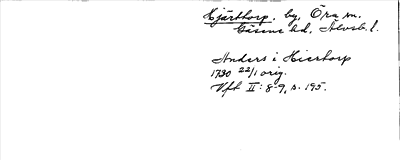 Hjärttorp. by, Öra sn.
Gäsene hd, Älvsb. l.
Anders i Hiertorp
1730 22/1 orig.
Vft II: 8-9, s. 195.